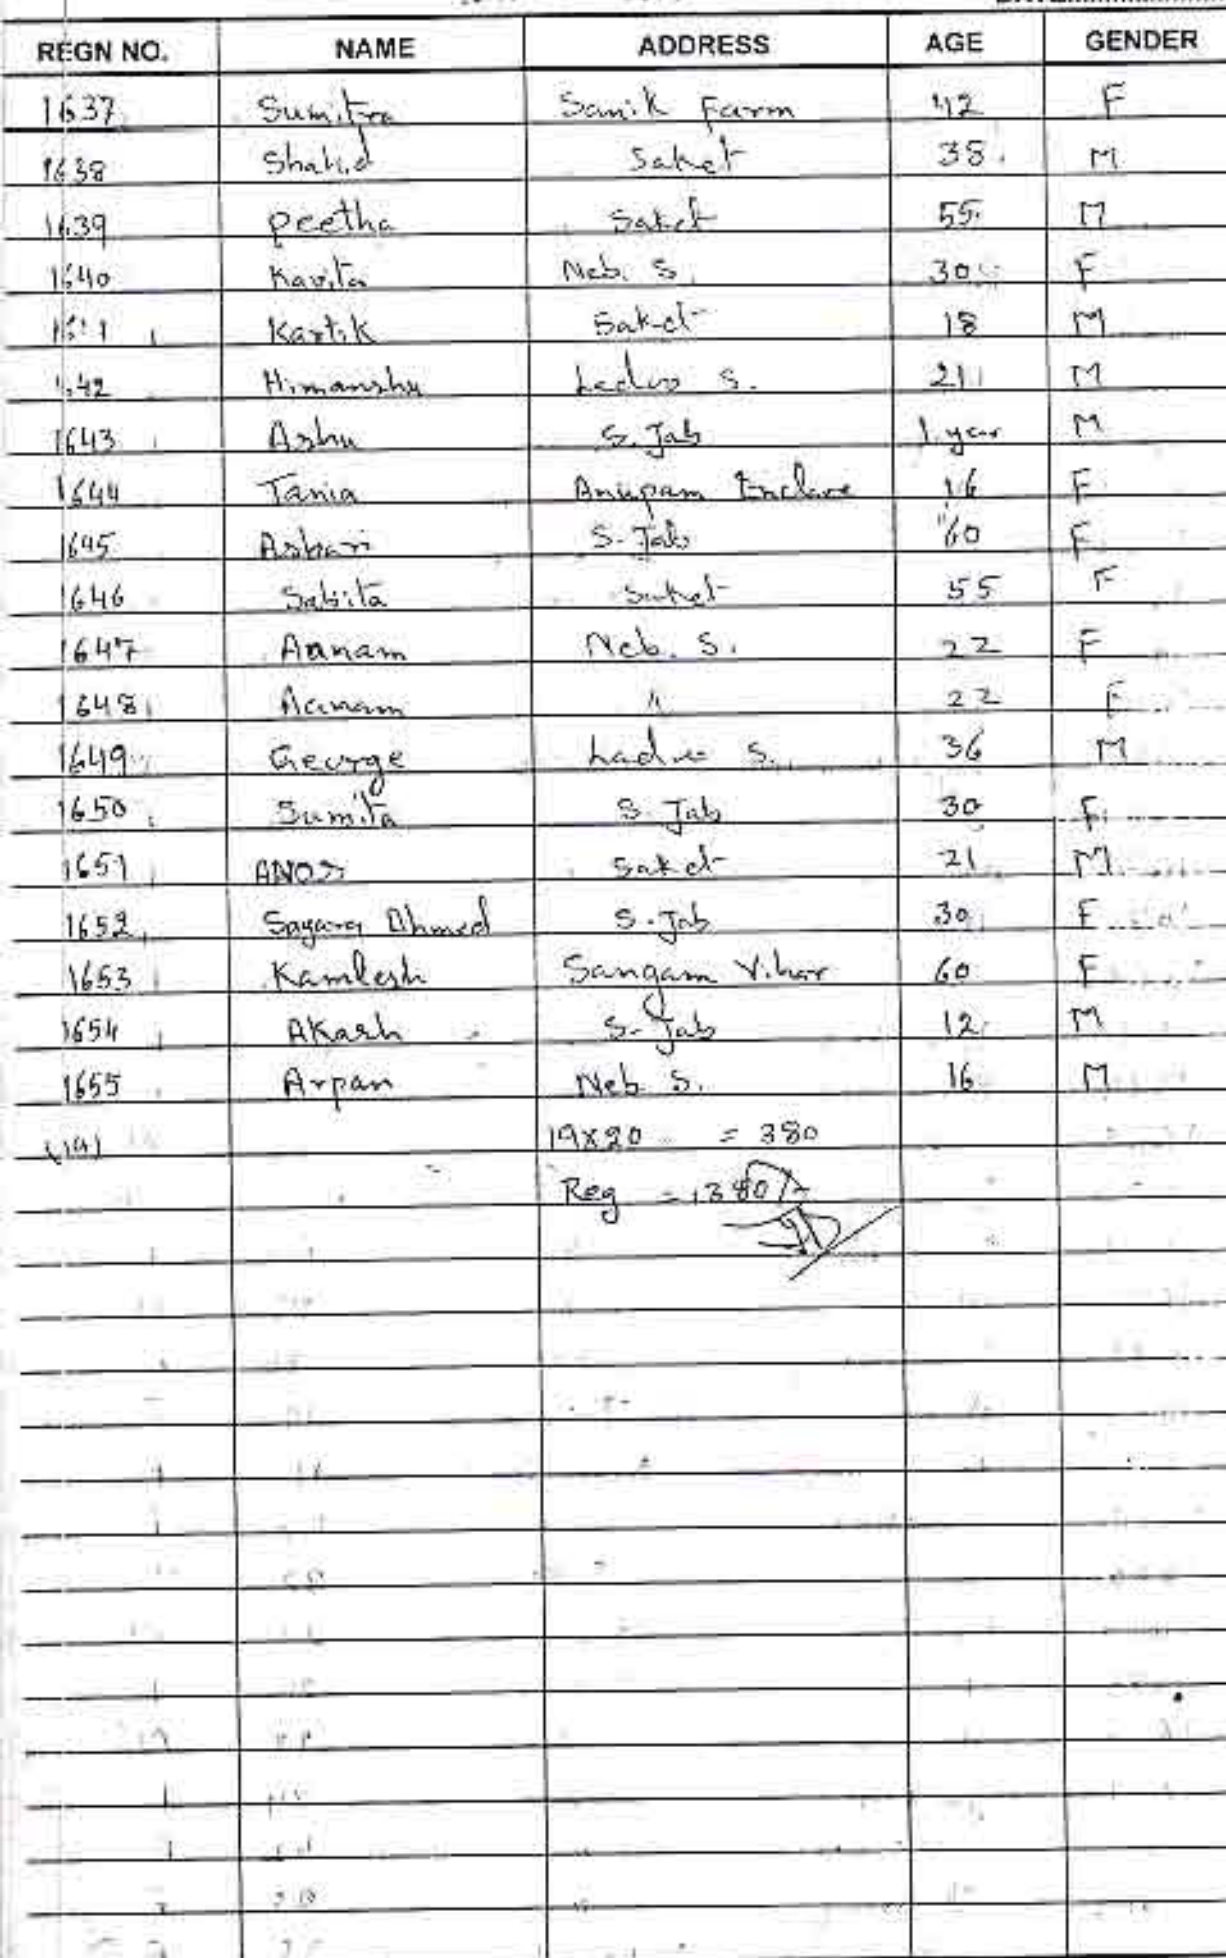 REGN NO. NAME ADDRESS AGE GENDER
1637 Sumitra Sanik Farm 42 F
1638 Shahid Saket 38 M
1639 Peetha Saket 55 M
1640 Kavita Neb. S. 30 F
Kartik Saket 18 M
Himanshu Lado S. 21 M
1643 Ashu S. Jab 1 year M
1644 Tania Anupam Enclave 16 F
1645 S. Jab 60 F
1646 Sabita Saket 55 F
1647 Aanam Neb. S. 22 F
1648 Aanam " 22 F
1649 George Lado S. 36 M
1650 Sumita S. Jab 30 F
1651 Saket 21 M
1652 Ahmed S. Jab 30 F
1653 Kamlesh Sangam Vihar 60 F
1654 Akash S. Jab 12 M
1655 Arpan Neb S. 16 M
(19) 19x20 = 380
Reg = 1380/-